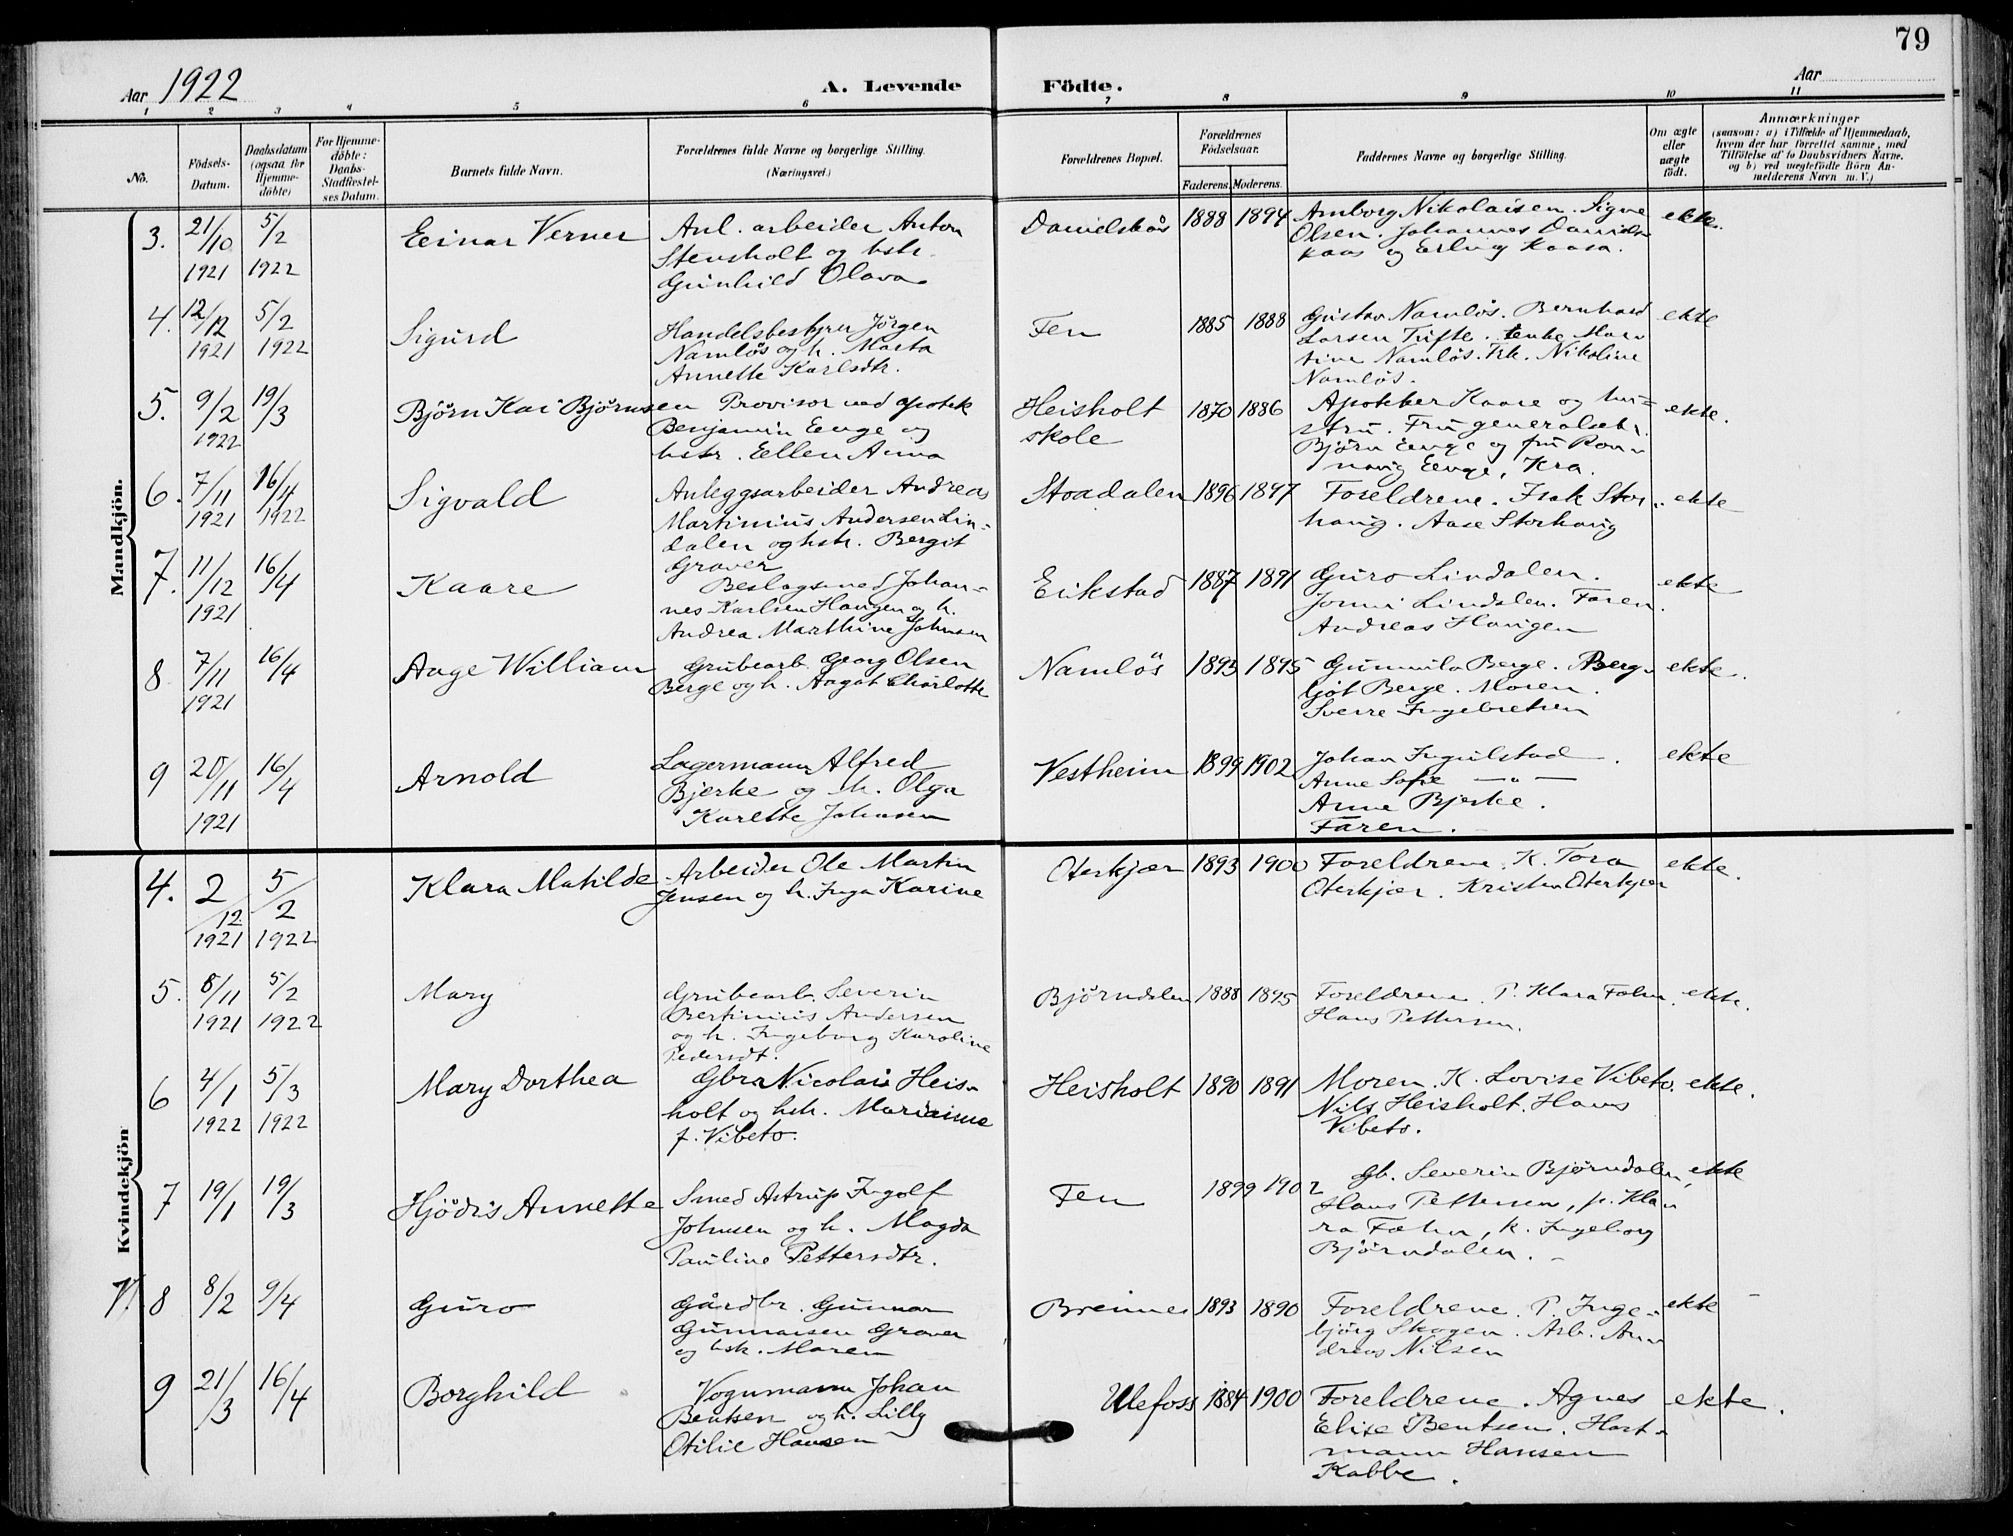 79
Aar 1922
A. Levende Födte.
Aar
1 2 3 4 5 6 7 8 9 10 11
No.
Födsels-
Datum.
Daabsdatum
(ogsaa for
Hjemme-
döbte)
For Hjemme-
döbte:
Daabs-
Stadfæstel-
ses Datum.
Barnets fulde Navn.
Forældrenes fulde Navne og borgerlige Stilling.
(Næringsvei.)
Forældrenes Bopæl.
Forældrenes
Födselsaar.
Faderens. Moderens.
Faddernes Navne og borgerlige Stilling.
Om ægte
eller
uægte
født.
Anmærkninger
(saasom: a) i Tilfælde af Hjemmedaab,
hvem der har forrettet samme, med
Tilföielse af to Daabsvidners Navne.
og b) ved uegtefödte Börn An-
melderens Navn m. V.)
Mandkjön.
3. 21/10 1921 5/2 1922
Einar Verner
Anl. arbeider Anton
Stensholt og hstr.
Gunhild Olava
Danielskås 1888 1894
Amborg Nikolaisen. Signe
Olsen. Johannes Daniels-
kaas og Erling Kaasa.
ekte.
4. 12/12 1921 5/2 1922
Sigurd
Handelsbestyrer Jörgen
Namlös og h. Marta
Annette Karlsdtr.
Fen 1885 1888
Gustav Namlös. Bernhard
Larsen Tufte. enke Mar-
tine Namlös. Frk. Nikoline
Namlös.
ekte
5. 9/2 1922 19/3
Björn Kai Björnsen
Provisor ved apotek
Benjamin Eenge og
hstr. Ellen Anna
Heisholt
skole
1870 1886
Apotheker Kaare og hu-
stru. Fru generalsekr.
Björn Eenge og fru Ron-
naug Eenge, Kra.
ekte.
6. 7/11 1921 16/4 1922
Sigvald
Anleggsarbeider Andreas
Martinius Andersen Lin-
dalen og hstr. Bergit
Graver
Stoadalen 1896 1897
Foreldrene. Isak Stor-
haug. Aase Storhaug
ekte
7. 11/12 1921 16/4
Kaare
Beslagsmed Johan-
nes Karlsen Haugen og h.
Andrea Marthine Johnsen
Erikstad 1887 1891
Guro Lindalen.
Jonni Lindalen. Faren.
Andreas Haugen
ekte
8 7/11 1921 16/4
Aage William
Grubearb. Georg Olsen
Berge og h. Aagot Charlotte
Namlös 1893 1895
Gunnula Berge. Berg-
ljot Berge. Moren.
Sverre Ingebretsen
ekte.
9 20/11 1921 16/4
Arnold
Lagermann Alfred
Bjerke og h. Olga
Karette Johnsen
Vestheim 1899 1902
Johan Ingulstad.
Anne Sofie — " —
Anne Bjerke.
Faren.
ekte
Kvindekjön
4. 2/12 1921 5/2 1922
Klara Matilde
Arbeider Ole Martin
Jensen og h. Inga Karine
Oterkjær 1893 1900
Foreldrene. K. Tora
Oterkjær. Kristen Oterkjær
ekte.
5. 8/11 1921 5/2 1922
Mary
Grubearb. Severin
Bertinius Andersen
og h. Ingeborg Karoline
Pedersdt.
Björndalen 1888 1895
Foreldrene. P. Klara Fæhn.
Hans Pettersen.
ekte.
6 4/1 1922 5/3 1922
Mary Dorthea
Gbr. Nicolai Heis-
holt og hstr. Marianne
f. Vibeto.
Heisholt 1890 1891
Moren. K. Lovise Vibeto.
Nils Heisholt. Hans
Vibeto.
ekte.
7 19/1 19/3
Hjödis Annette
Smed Astrup Ingolf
Johnsen og h. Magda
Pauline Pettersdtr.
Fen 1899 1902
Gb. Severin Björndalen,
Hans Pettersen, p. Kla-
ra Fæhn, k. Ingeborg
Björndalen.
ekte
V. 8 8/2 9/4
Guro
Gårdbr. Gunnar
Gunnarsen Graver
og hstr. Maren
Brennes 1893 1890
Foreldrene. P. Inge-
björg Skogen. Arb. An-
dreas Nilsen
ekte
9 21/3 16/4
Borghild
Vognmann Johan
Bentsen og h. Lilly
Otilie Hansen
Ulefoss 1884 1900
Foreldrene. Agnes
Elise Bentsen. Hart-
mann Hansen
Kabbe.
ekte.